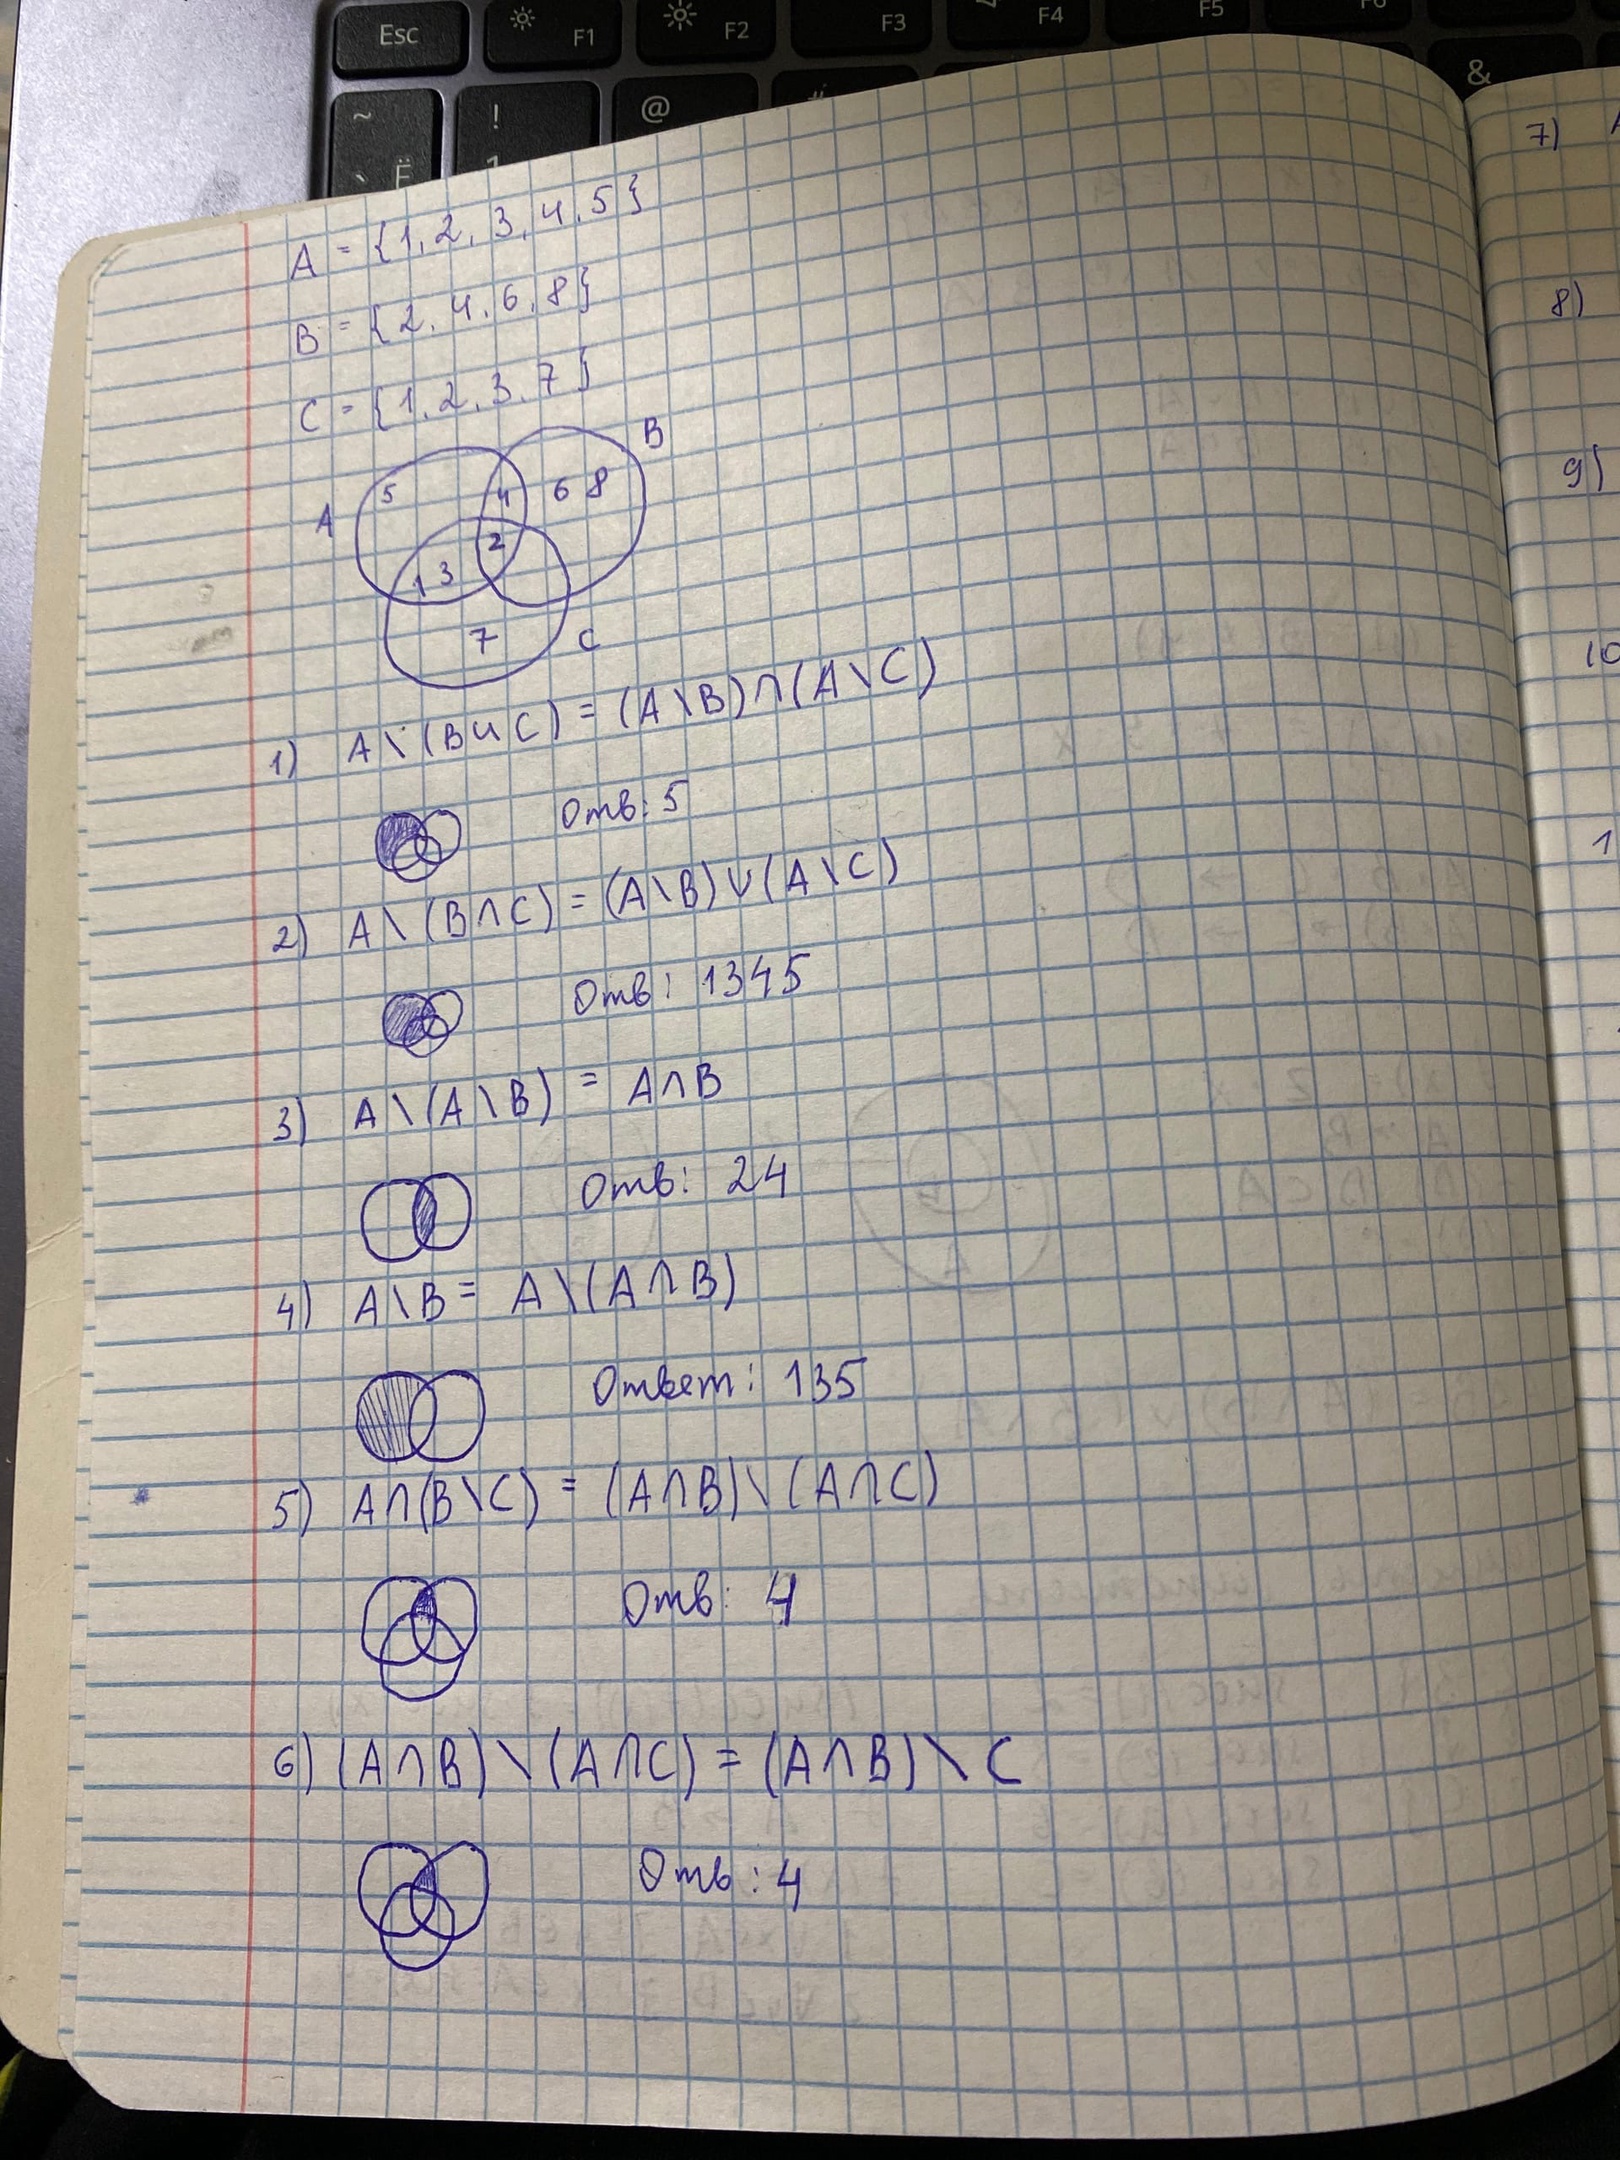 Esc F1 F2 F3 F4 F5
~ ! @ &
Ё 1
A = {1, 2, 3, 4, 5}
B = {2, 4, 6, 8}
C = {1, 2, 3, 7}
B
A 5 4 6 8
2
1 3
7 C
1) A \ (B ∪ C) = (A \ B) ∩ (A \ C)
Отв: 5
2) A \ (B ∩ C) = (A \ B) ∪ (A \ C)
Отв: 1345
3) A \ (A \ B) = A ∩ B
Отв: 24
4) A \ B = A \ (A ∩ B)
Ответ: 135
5) A ∩ (B \ C) = (A ∩ B) \ (A ∩ C)
Отв: 4
6) (A ∩ B) \ (A ∩ C) = (A ∩ B) \ C
Отв: 4
7)
8)
9)
10
1